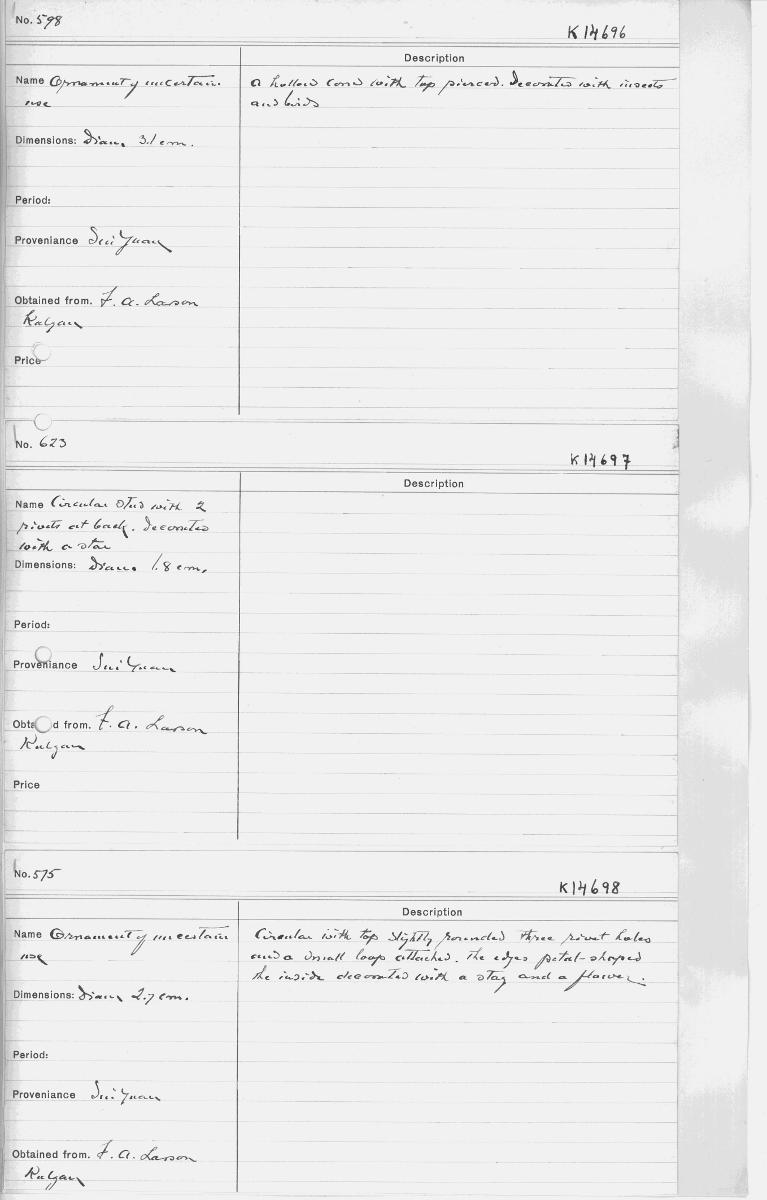 No. 598
K 14696
Description
Name Ornament of uncertain
use
a hollow cone with top pierced. Decorated with insects
and birds
Dimensions: Diam. 3.1 cm.
Period:
Proveniance Sui Yuan
Obtained from. F. A. Larson
Kalgan
Price
No. 623
K 14697
Description
Name Circular stud with 2
rivets at back. Decorated
with a star
Dimensions: Diam. 1.8 cm.
Period:
Proveniance Sui Yuan
Obta d from. F. A. Larson
Kalgan
Price
No. 575
K 14698
Description
Name Ornament of uncertain
use
Circular with top slightly rounded three rivet holes
and a small loop attached. The edges petal-shaped
the inside decorated with a stag and a flower.
Dimensions: Diam 2.7 cm.
Period:
Proveniance Sui Yuan
Obtained from. F. A. Larson
Kalgan